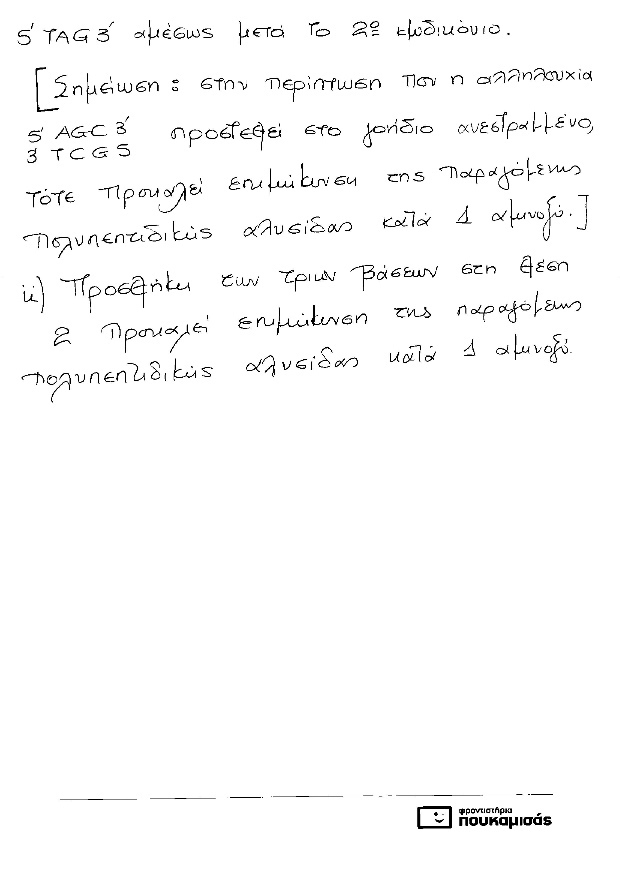 5' TAG 3' αμέσως μετά το 2º κωδικόνιο.
[Σημείωση: στην περίπτωση που η αλληλουχία
5' AGC 3' προστεθεί στο γονίδιο ανεστραμμένο,
3 TCG 5
τότε προκαλεί επιμήκυνση της παραγόμενης
πολυπεπτιδικής αλυσίδας κατά 1 αμινοξύ.]
ii) Προσθήκη των τριών βάσεων στη θέση
2 προκαλεί επιμήκυνση της παραγόμενης
πολυπεπτιδικής αλυσίδας κατά 1 αμινοξύ.
φροντιστήρια
πουκαμισάς